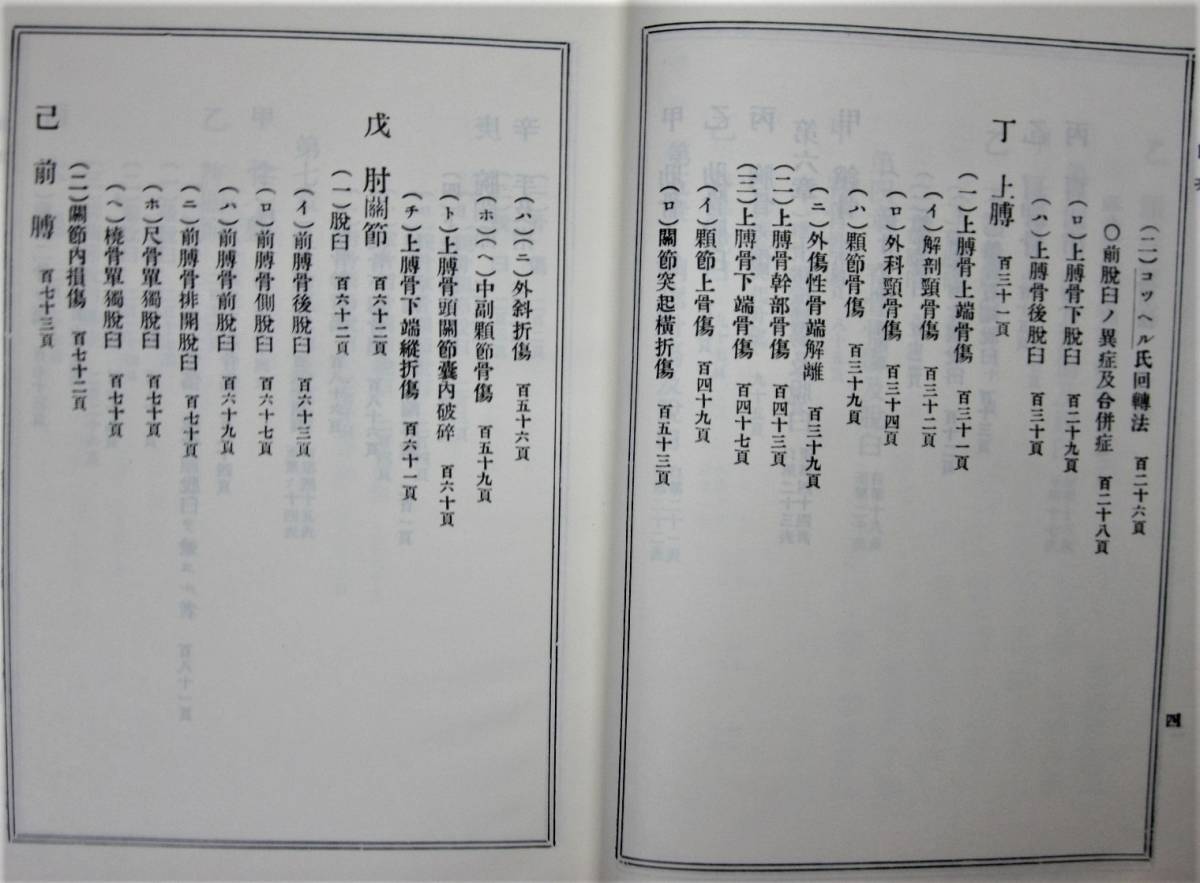 (二)コツヘル氏回轉法 百二十六頁
〇前脫臼ノ異症及合併症 百二十八頁
(ロ)上膊骨下脫臼 百二十九頁
(ハ)上膊骨後脫臼 百三十頁
丁 上膊 百三十一頁
(一)上膊骨上端骨傷 百三十一頁
(イ)解剖頸骨傷 百三十二頁
(ロ)外科頸骨傷 百三十四頁
(ハ)顆節骨傷 百三十九頁
(ニ)外傷性骨端解離 百三十九頁
(二)上膊骨幹部骨傷 百四十三頁
(三)上膊骨下端骨傷 百四十七頁
(イ)顆節上骨傷 百四十九頁
(ロ)關節突起橫折傷 百五十三頁
四
(ハ)(ニ)外斜折傷 百五十六頁
(ホ)(ヘ)中副顆節骨傷 百五十九頁
(ト)上膊骨頭關節囊內破碎 百六十頁
(チ)上膊骨下端縱折傷 百六十一頁
戊 肘關節 百六十二頁
(一)脫臼 百六十二頁
(イ)前膊骨後脫臼 百六十三頁
(ロ)前膊骨側脫臼 百六十七頁
(ハ)前膊骨前脫臼 百六十九頁
(ニ)前膊骨排開脫臼 百七十頁
(ホ)尺骨單獨脫臼 百七十頁
(ヘ)橈骨單獨脫臼 百七十頁
(二)關節內損傷 百七十二頁
己 前膊 百七十三頁